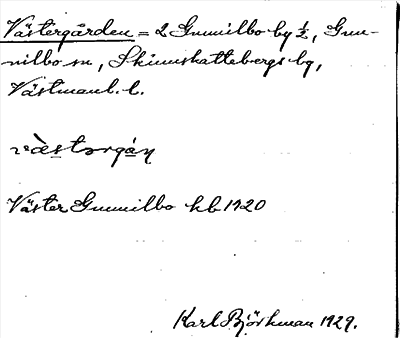 Västergården = 2 Gunnilbo by ½, Gun-
nilbo sn, Skinnskattebergs bg,
Västmanl. l.
vàstərgán
Väster Gunnilbo kb 1920
Karl Björkman 1929.